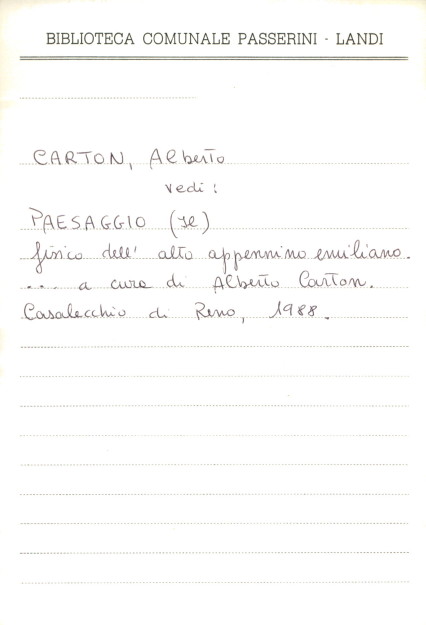 BIBLIOTECA COMUNALE PASSERINI - LANDI
CARTON, Alberto
vedi:
PAESAGGIO (Il)
fisico dell' alto appennino emiliano.
... a cura di Alberto Carton.
Casalecchio di Reno, 1988.